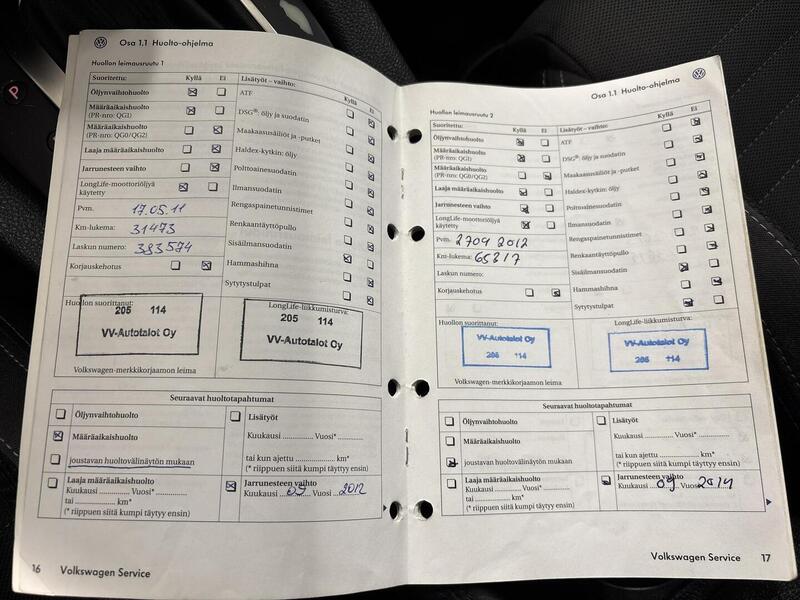 P
Osa 1.1 Huolto-ohjelma
Huollon leimausruutu 1
Suoritettu: Kyllä Ei Lisätyöt – vaihto: Kyllä Ei
Öljynvaihtohuolto
ATF
Määräaikaishuolto
(PR-nro: QG1)
DSG®: öljy ja suodatin
Määräaikaishuolto
(PR-nro: QG0/QG2)
Maakaasusäiliöt ja -putket
Laaja määräaikaishuolto
Haldex-kytkin: öljy
Jarrunesteen vaihto
Polttoainesuodatin
LongLife-moottoriöljyä
käytetty
Ilmansuodatin
Pvm. 17.05.11
Rengaspainetunnistimet
Km-lukema: 31473
Renkaantäyttöpullo
Laskun numero: 393574
Sisäilmansuodatin
Korjauskehotus
Hammashihna
Sytytystulpat
Huollon suorittanut:
LongLife-liikkumisturva:
205 114
VV-Autotalot Oy
205 114
VV-Autotalot Oy
Volkswagen-merkkikorjaamon leima
Seuraavat huoltotapahtumat
Öljynvaihtohuolto
Lisätyöt
Määräaikaishuolto
Kuukausi .............. Vuosi* ..............
joustavan huoltovälinäytön mukaan
tai kun ajettu .............. km*
(* riippuen siitä kumpi täyttyy ensin)
Laaja määräaikaishuolto
Kuukausi ............ Vuosi* ............
tai .............. km*
(* riippuen siitä kumpi täyttyy ensin)
Jarrunesteen vaihto
Kuukausi 05 Vuosi 2012
16 Volkswagen Service
Osa 1.1 Huolto-ohjelma
Huollon leimausruutu 2
Suoritettu: Kyllä Ei Lisätyöt – vaihto: Kyllä Ei
Öljynvaihtohuolto
ATF
Määräaikaishuolto
(PR-nro: QG1)
DSG®: öljy ja suodatin
Määräaikaishuolto
(PR-nro: QG0/QG2)
Maakaasusäiliöt ja -putket
Laaja määräaikaishuolto
Haldex-kytkin: öljy
Jarrunesteen vaihto
Polttoainesuodatin
LongLife-moottoriöljyä
käytetty
Ilmansuodatin
Pvm. 2704 2012
Rengaspainetunnistimet
Km-lukema: 65817
Renkaantäyttöpullo
Laskun numero:
Sisäilmansuodatin
Korjauskehotus
Hammashihna
Sytytystulpat
Huollon suorittanut:
LongLife-liikkumisturva:
VV-Autotalot Oy
205 114
VV-Autotalot Oy
205 114
Volkswagen-merkkikorjaamon leima
Seuraavat huoltotapahtumat
Öljynvaihtohuolto
Lisätyöt
Määräaikaishuolto
Kuukausi .............. Vuosi* ..............
joustavan huoltovälinäytön mukaan
tai kun ajettu .............. km*
(* riippuen siitä kumpi täyttyy ensin)
Laaja määräaikaishuolto
Kuukausi ............ Vuosi* ............
tai .............. km*
(* riippuen siitä kumpi täyttyy ensin)
Jarrunesteen vaihto
Kuukausi 09 Vuosi 2014
Volkswagen Service 17